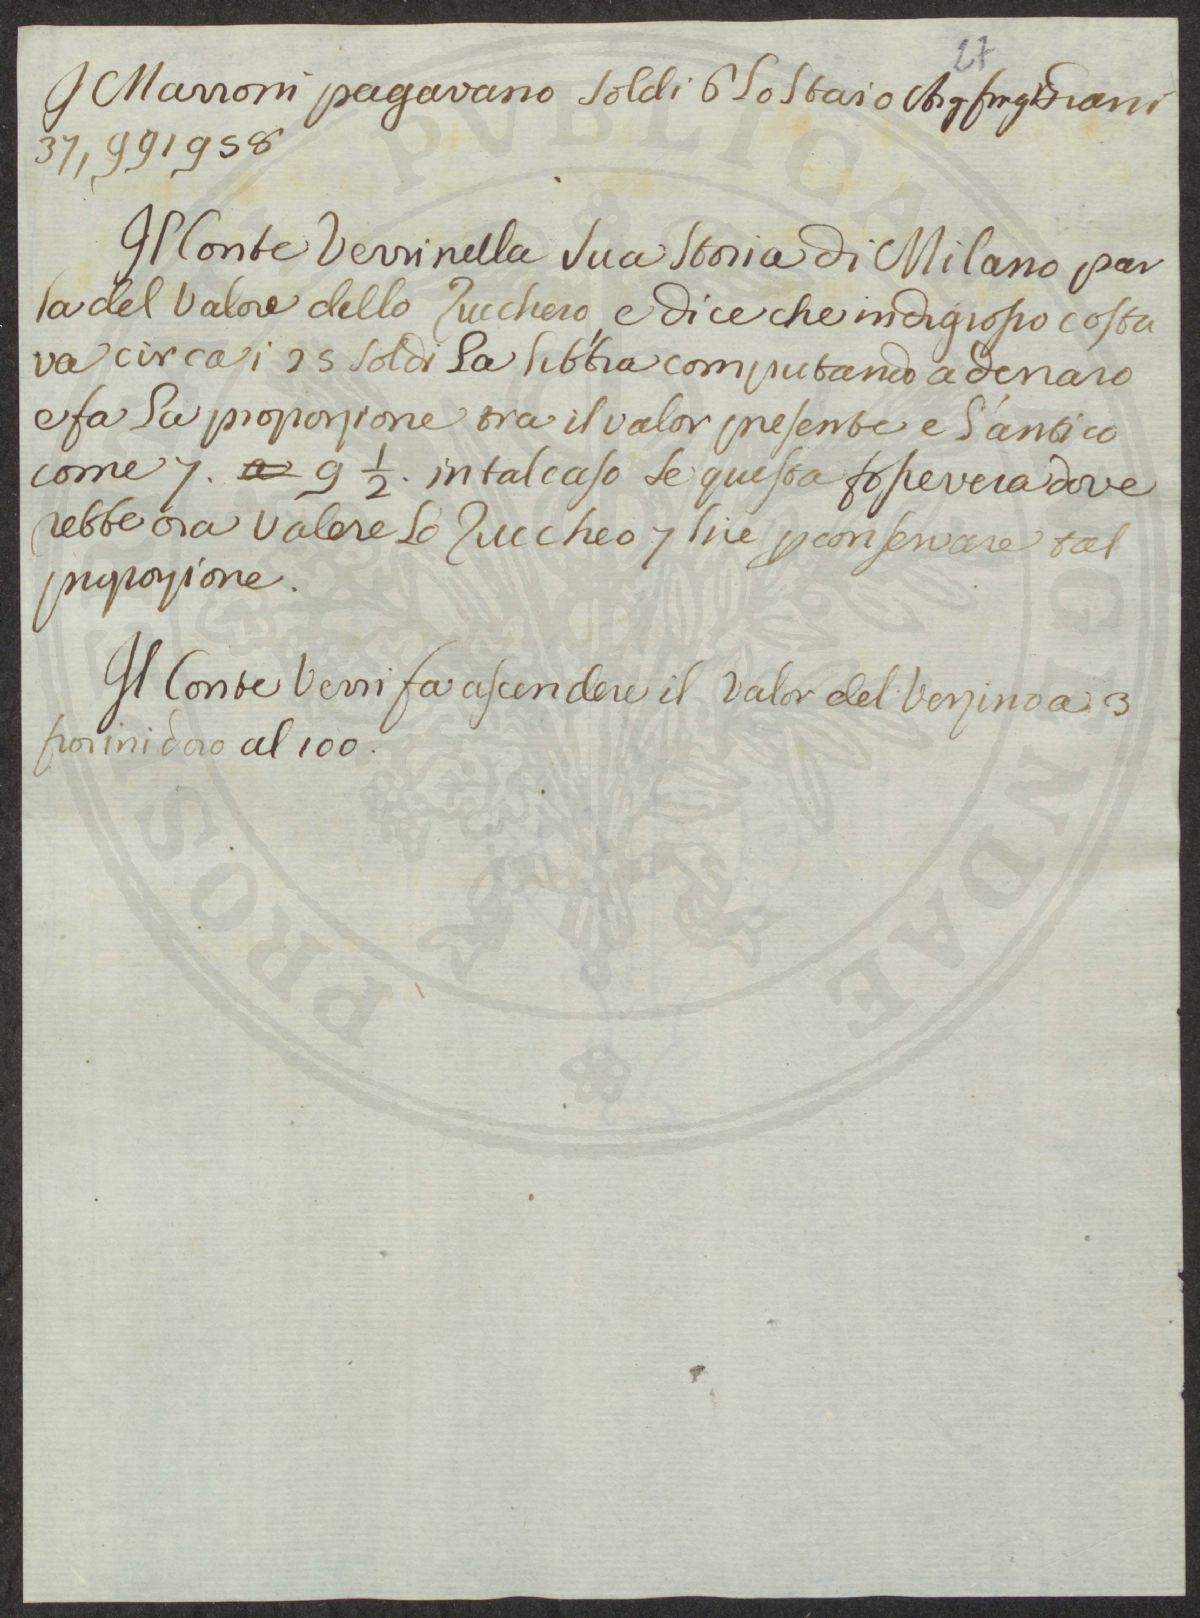 27
I Marroni pagavano soldi 6 Lo Staio Arg fin grani
37,991958
Il Conte Verri nella sua Storia di Milano par
la del Valore dello Zucchero, e dice che indigrosso costa
va circa i 25 soldi La libbra computando a denaro
e fa La proporzione tra il valor presente e L'antico
come 7. a 9 1/2. in tal caso se questa fosse vera dove
rebbe ora Valere Lo Zuccheo 7 lire p conservare tal
proporzione.
Il Conte Verri fa ascendere il Valor del Verzino a 3
fiorini doro al 100.
PROSPERITATI PVBLICAE AVGENDAE